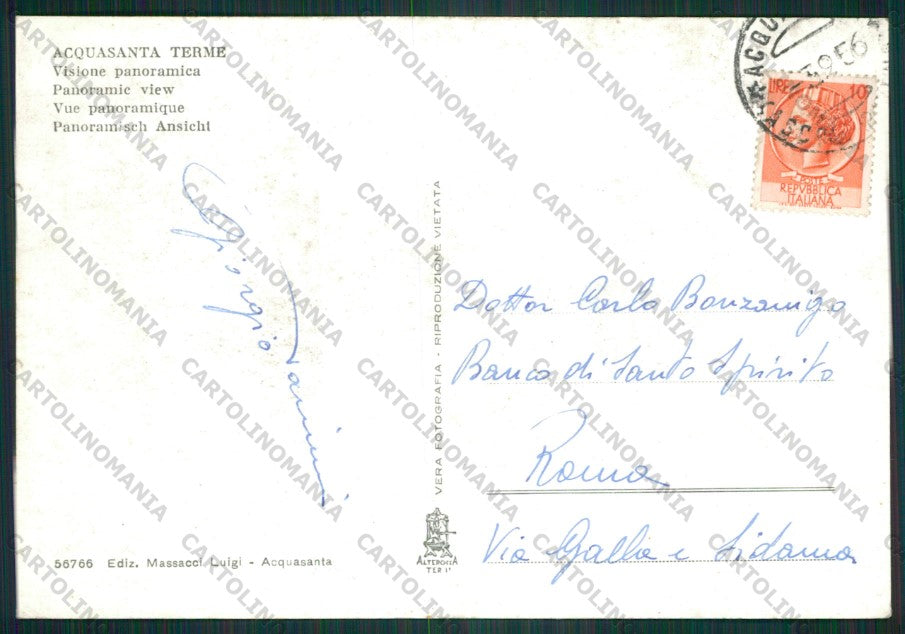 ACQUASANTA TERME
Visione panoramica
Panoramic view
Vue panoramique
Panoramisch Ansicht
Giorgio
VERA FOTOGRAFIA - RIPRODUZIONE VIETATA
ACQU
9 56
LIRE 10
POSTE
REPVBBLICA
ITALIANA
Dottor Carlo Bonzanigo
Banco di Santo Spirito
Roma
Via Galla e Sidama
56766 Ediz. Massacci Luigi - Acquasanta
ALTEROCCA
TERNI
CARTOLINOMANIA